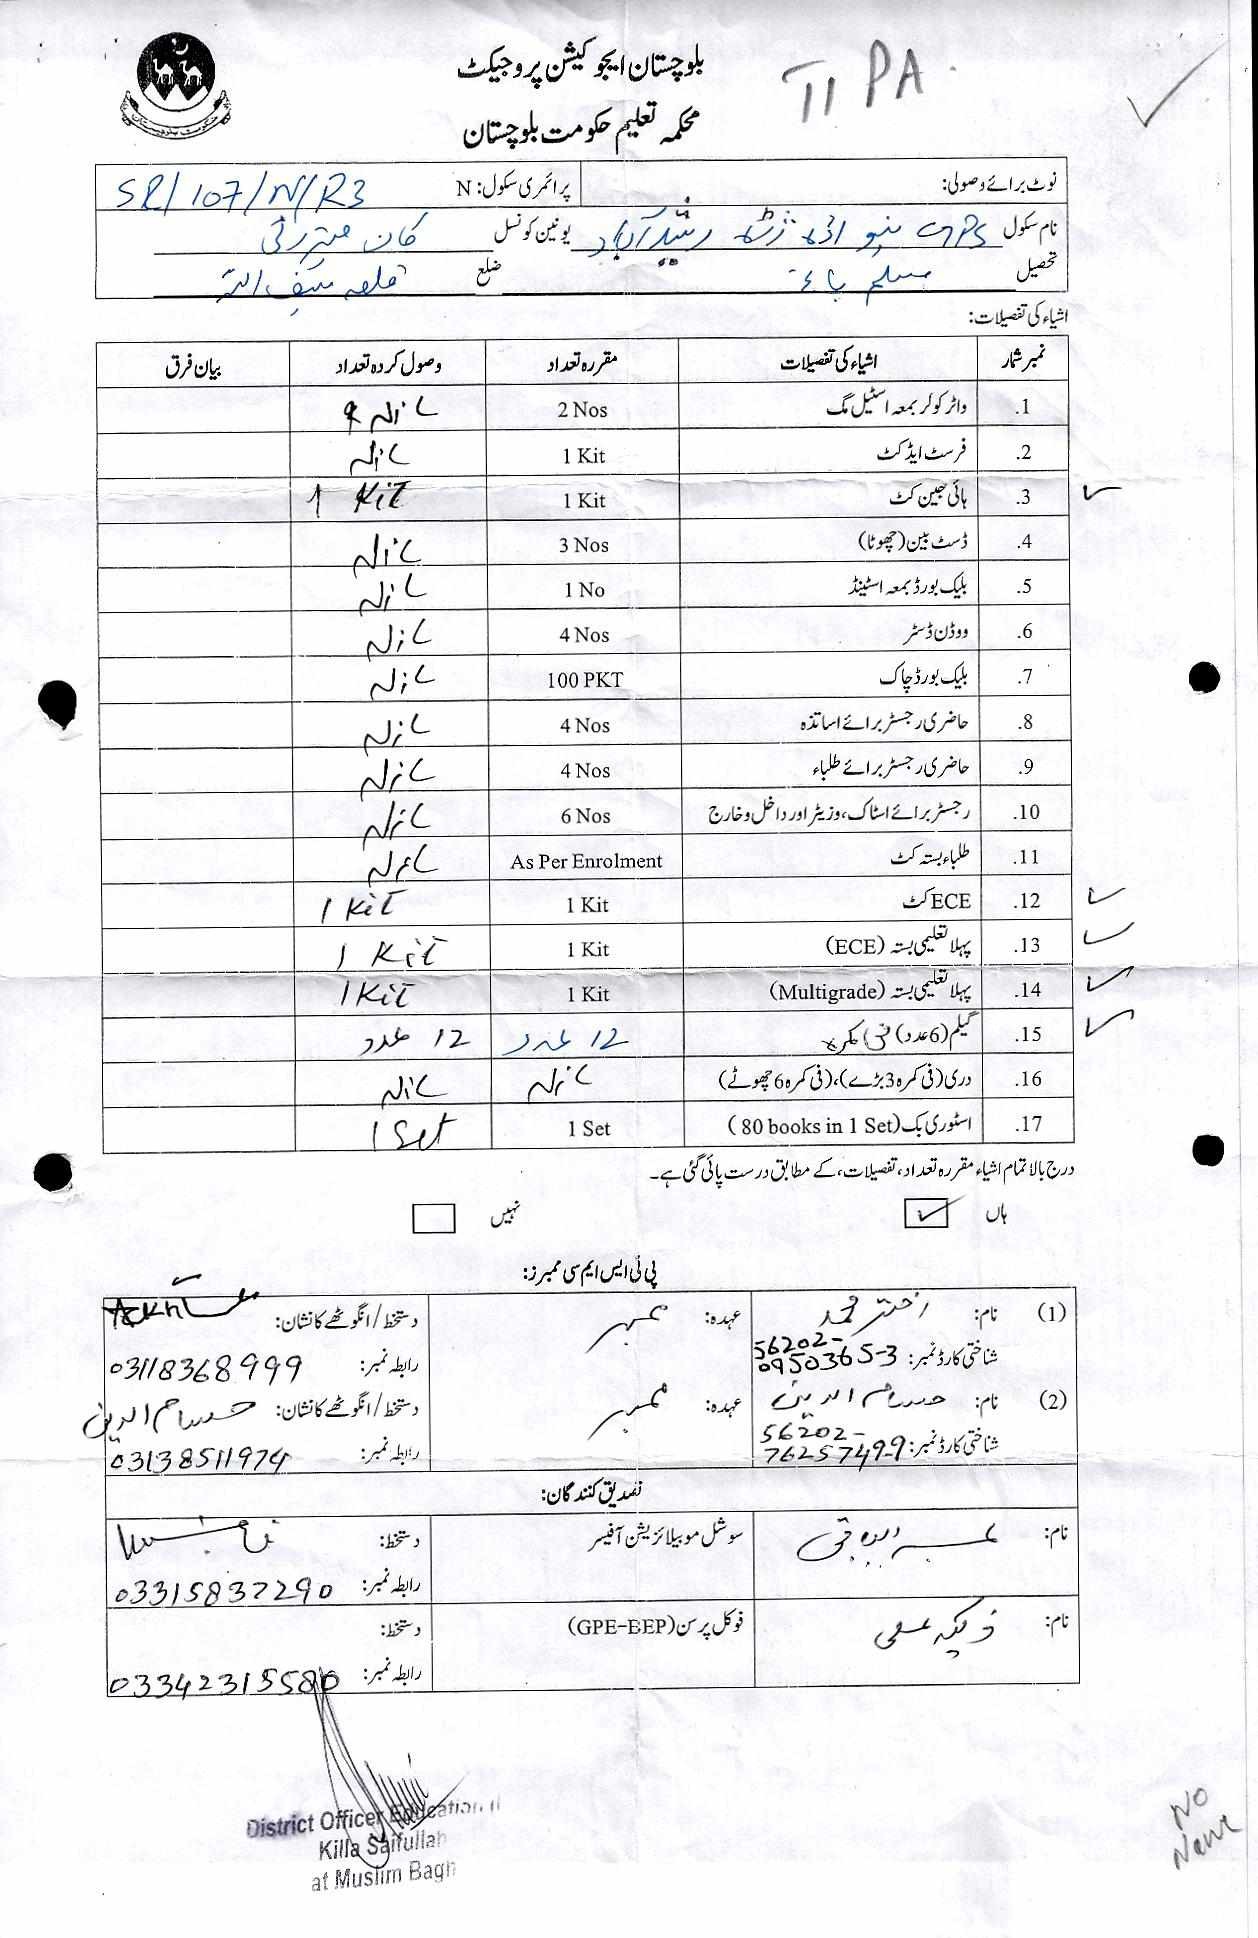 بلوچستان ایجوکیشن پروجیکٹ
TI PA
محکمہ تعلیم حکومت بلوچستان
نوٹ برائے وصولی:
پرائمری سکول: N SR/107/N/R3
نام سکول GPS رشید آباد یونین کونسل کان مہترزئی
تحصیل مسلم باغ ضلع قلعہ سیف اللہ
اشیاء کی تفصیلات:
نمبر شمار اشیاء کی تفصیلات مقررہ تعداد وصول کردہ تعداد بیان فرق
1. واٹر کولر بمعہ اسٹیل مگ 2 Nos Nil
2. فرسٹ ایڈ کٹ 1 Kit Nil
3. ہائی جین کٹ 1 Kit 1 Kit
4. ڈسٹ بین (چھوٹا) 3 Nos Nil
5. بلیک بورڈ بمعہ اسٹینڈ 1 No Nil
6. ووڈن ڈسٹر 4 Nos Nil
7. بلیک بورڈ چاک 100 PKT Nil
8. حاضری رجسٹر برائے اساتذہ 4 Nos Nil
9. حاضری رجسٹر برائے طلباء 4 Nos Nil
10. رجسٹر برائے اسٹاک، وزیٹر اور داخل و خارج 6 Nos Nil
11. طلباء بستہ کٹ As Per Enrolment Nil
12. ECE کٹ 1 Kit 1 Kit
13. پہلا تعلیمی بستہ (ECE) 1 Kit 1 Kit
14. پہلا تعلیمی بستہ (Multigrade) 1 Kit 1 Kit
15. گیلم (6 عدد) فی کمرہ 12 عدد 12 عدد
16. دری (فی کمرہ 3 بڑے)، (فی کمرہ 6 چھوٹے) Nil Nil
17. اسٹوری بک (80 books in 1 Set) 1 Set 1 Set
درج بالا تمام اشیاء مقررہ تعداد، تفصیلات، کے مطابق درست پائی گئی ہے۔
ہاں نہیں
پی ٹی ایس ایم سی ممبرز:
(1) نام: اختر محمد عہدہ: ممبر دستخط/انگوٹھے کا نشان:
شناختی کارڈ نمبر: 56202-0950365-3 رابطہ نمبر: 03118368999
(2) نام: حسام الدین عہدہ: ممبر دستخط/انگوٹھے کا نشان: حسام الدین
شناختی کارڈ نمبر: 56202-7625749-9 رابطہ نمبر: 03138511974
تصدیق کنندگان:
نام: عبدالباقی سوشل موبیلائزیشن آفیسر دستخط:
رابطہ نمبر: 03315837290
نام: فوکل پرسن (GPE-EEP) دستخط:
رابطہ نمبر: 03342315580
District Officer Education
Killa Saifullah
at Muslim Bagh
NO
Name